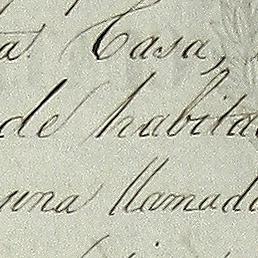 a. Casa,
de habita
una llamada